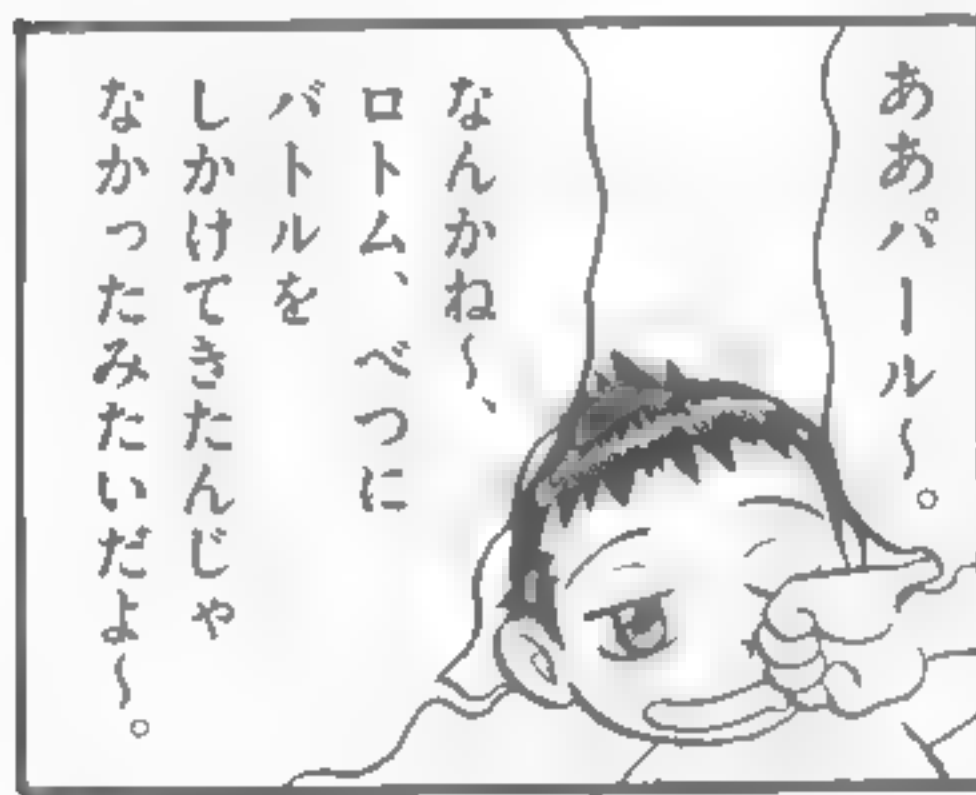 ああパール～。
なんかね～、
ロトム、べつに
バトルを
しかけてきたんじゃ
なかったみたいだよ～。